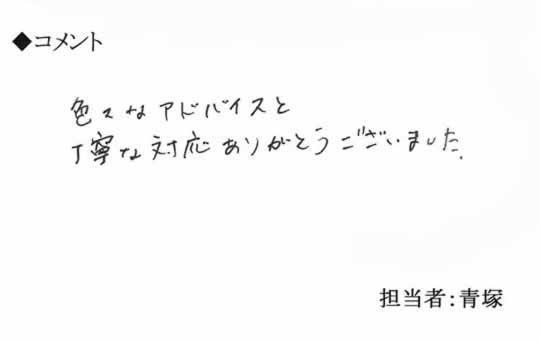 ◆コメント
色々なアドバイスと
丁寧な対応ありがとうございました.
担当者:青塚